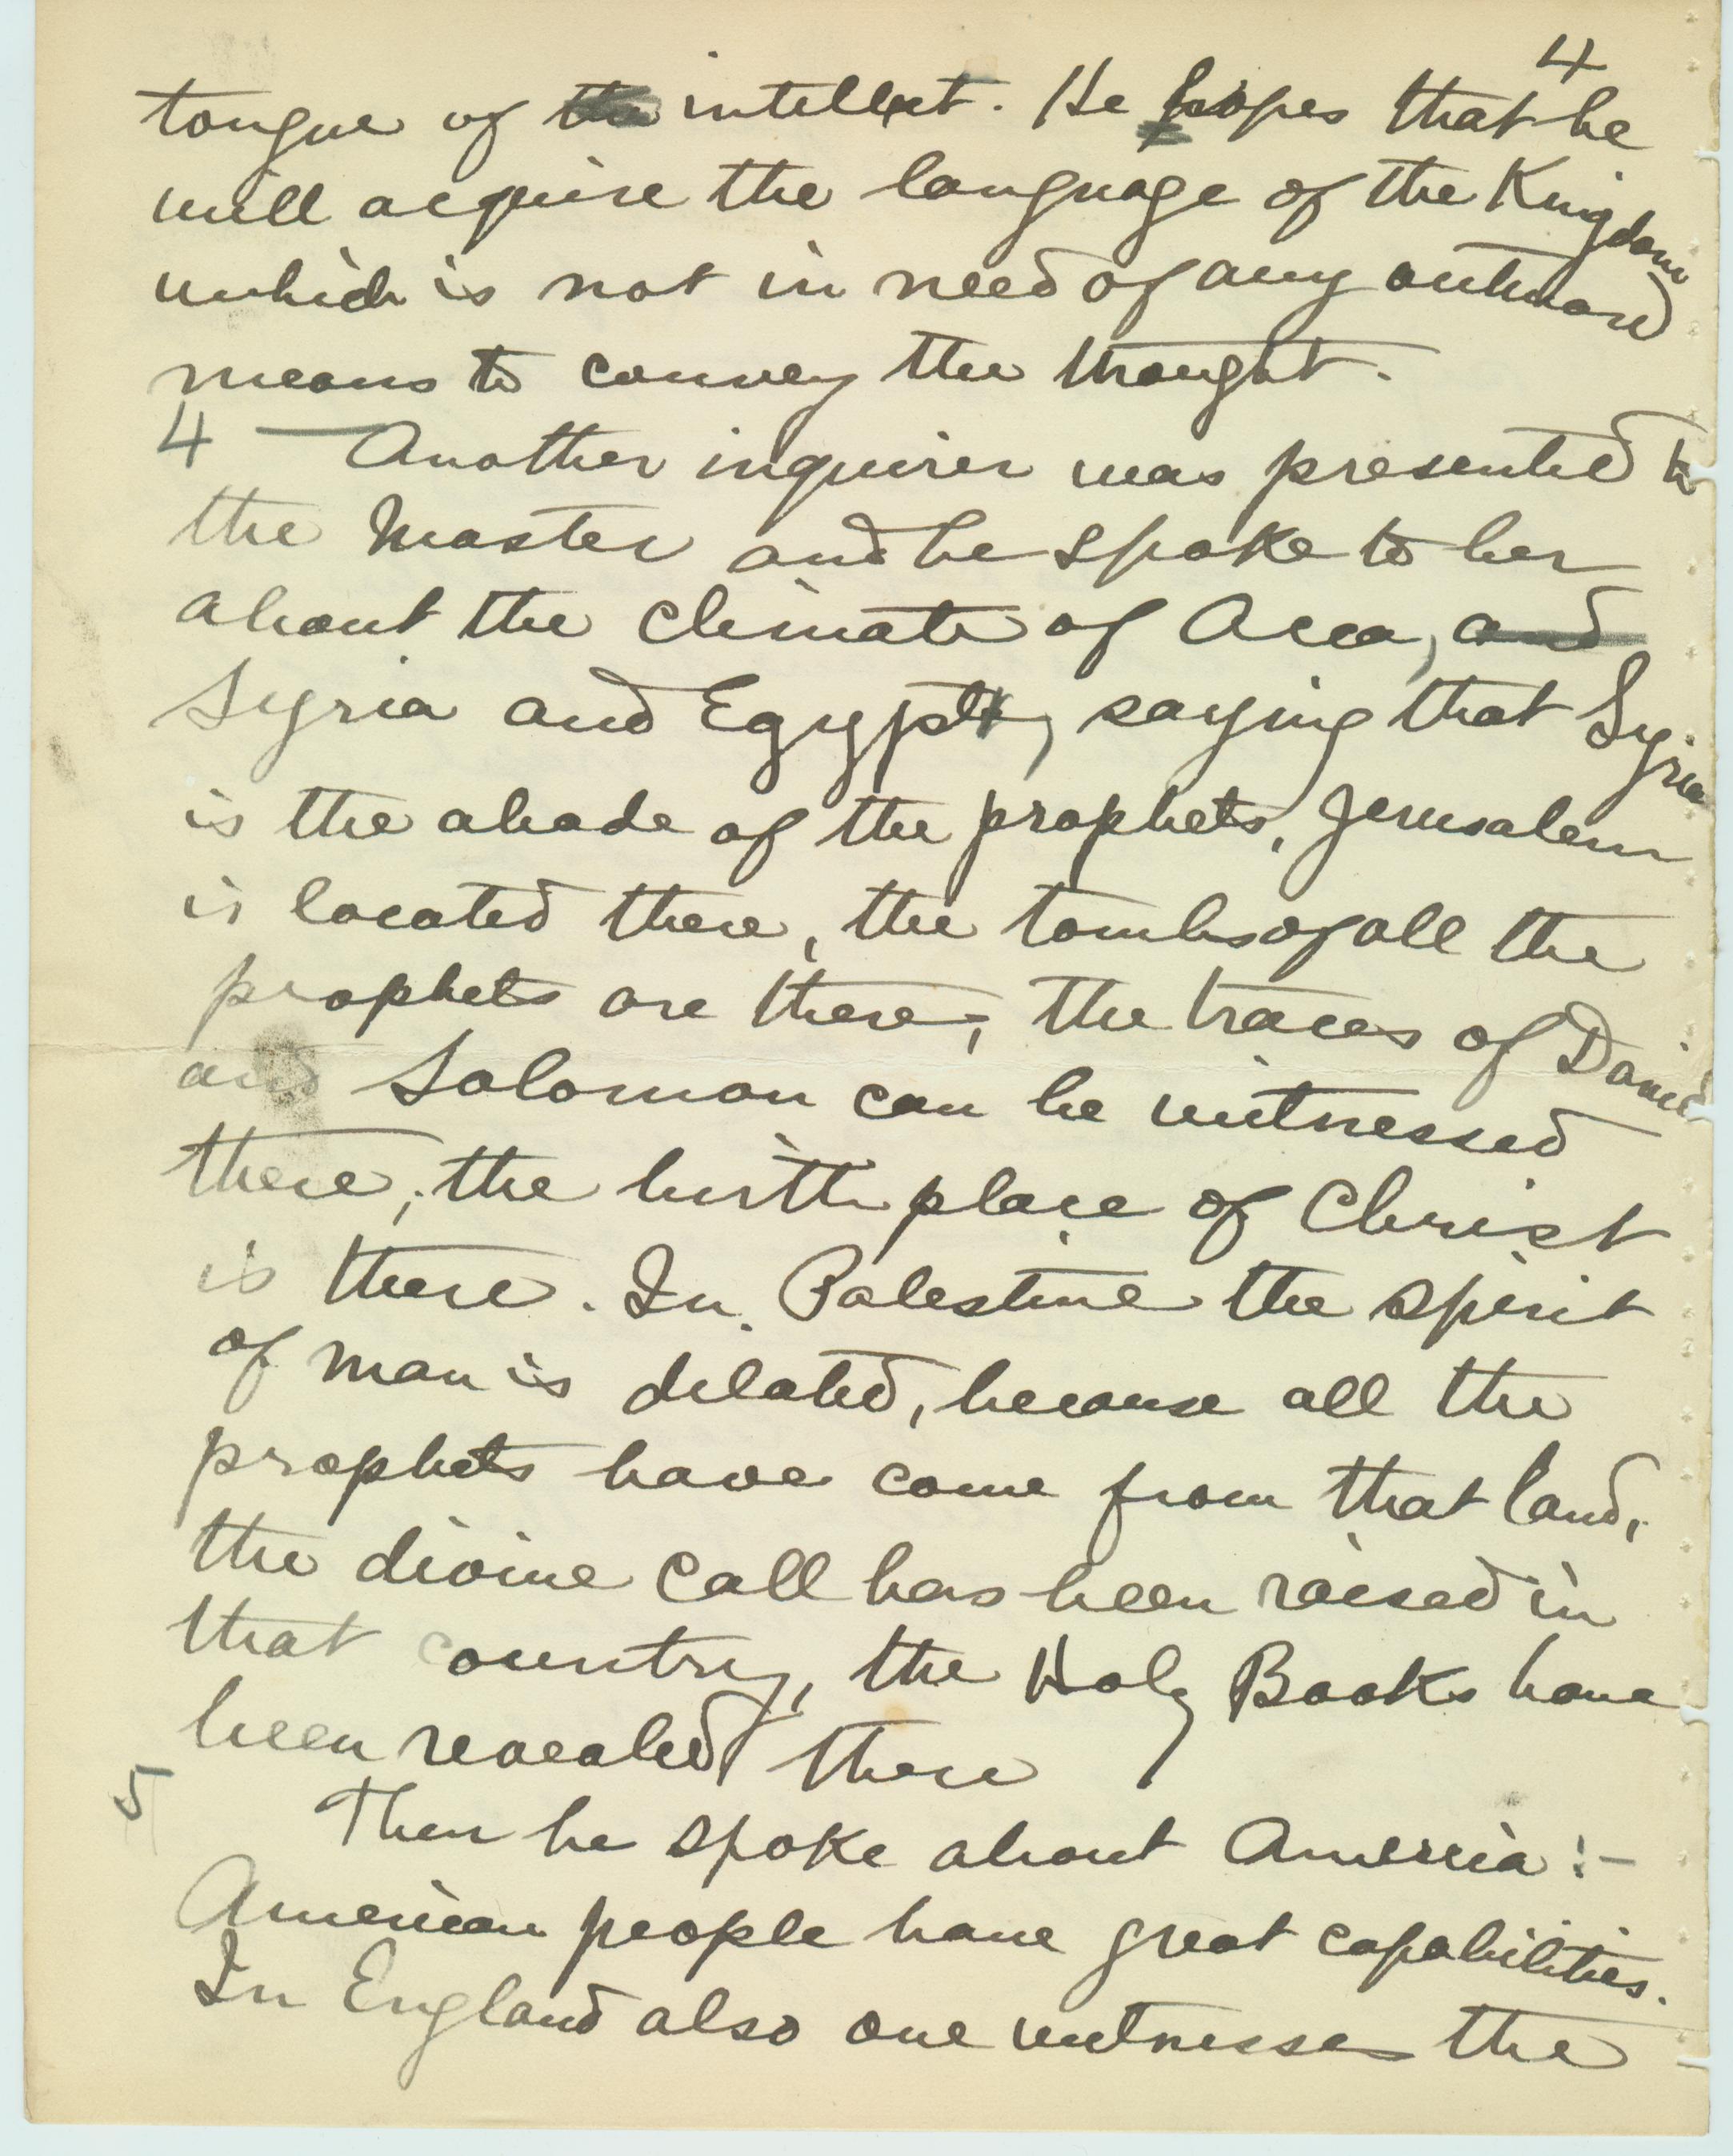 4
tongue of the intellect. He hopes that he
will acquire the language of the Kingdom
which is not in need of any outward
means to convey the thought.
4 — Another inquirer was presented to
the Master and he spoke to her
about the climate of Acca, and
Syria and Egypt, saying that Syria
is the abode of the prophets, Jerusalem
is located there, the tombs of all the
prophets are there; the traces of David
and Solomon can be witnessed
there; the birth place of Christ
is there. In Palestine the spirit
of man is dilated, because all the
prophets have come from that land,
the divine call has been raised in
that country, the Holy Books have
been revealed there
5 Then he spoke about America:-
American people have great capabilities.
In England also one witnesses the